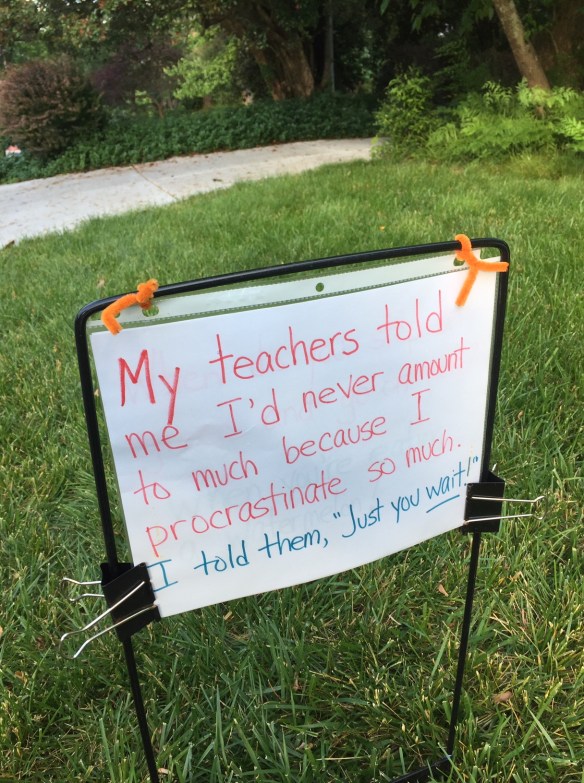 My teachers told
me I'd never amount
to much because I
procrastinate so much.
I told them, "Just you wait!"